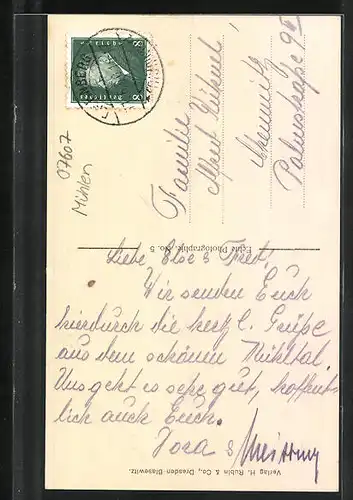 07607
Mühlen
Familie
Alfred
Chemnitz
Palmstraße 9
Echte Photographie. No. 5
Liebe Else & Fred,
Wir senden Euch
hierdurch die herzl. Grüße
aus dem schönen Mühltal.
Uns geht es sehr gut, hoffent-
lich auch Euch.
Dora &
Verlag H. Rubin & Co., Dresden-Blasewitz.
Deutsches
8 8